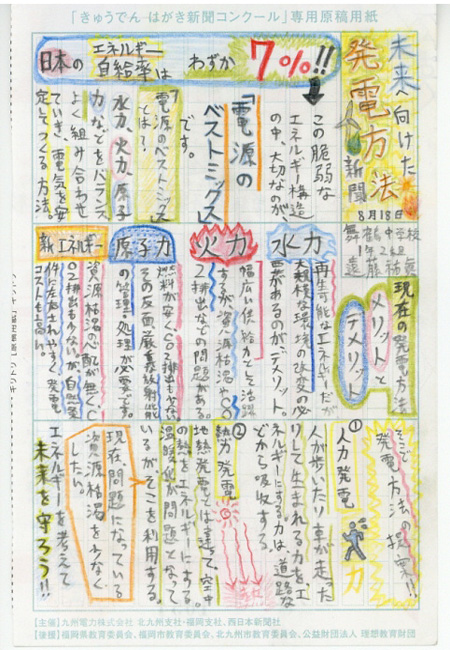 「きゅうでん はがき新聞コンクール」専用原稿用紙
未来へ向けた
発電方法
新聞
8月18日
舞鶴中学校
1年2組
日本のエネルギー自給率は
わずか7%!!
この脆弱な
エネルギー構造
の中、大切なのが
「電源の
ベストミックス」
です。
「電源のベストミックス」
とは?
水力、火力、原子
力などをバランス
よく組み合わせ
ていき、電気を安
定してつくる方法。
現在の発電方法
メリットと
デメリット
水力
再生可能なエネルギーだが
大規模な環境の改変の必
要があるのがデメリット。
火力
幅広い供給力として活躍
するが、資源枯渇やCO
2排出などの問題がある。
原子力
燃料が安くCO2排出も少ない
その反面厳重な放射能
の管理・処理が必要です。
新エネルギー
資源枯渇の心配が無くC
O2排出も少ないが、自然条
件に左右されやすく発電
コストも高い。
そこで
発電方法の提案!!
①
人力発電
人が歩いたり車が走った
りして生まれる力をエ
ネルギーにする力は、道路な
どから吸収する。
②
熱力発電
地熱発電とは違って、空中
の熱をエネルギーにする。
温暖化が問題となって
いるが、そこを利用する。
現在問題になっている
資源枯渇を少なく
したい。
エネルギーを考えて
未来を守ろう!!
【主催】九州電力株式会社 北九州支社・福岡支社、西日本新聞社
【後援】福岡県教育委員会、福岡市教育委員会、北九州市教育委員会、公益財団法人 理想教育財団